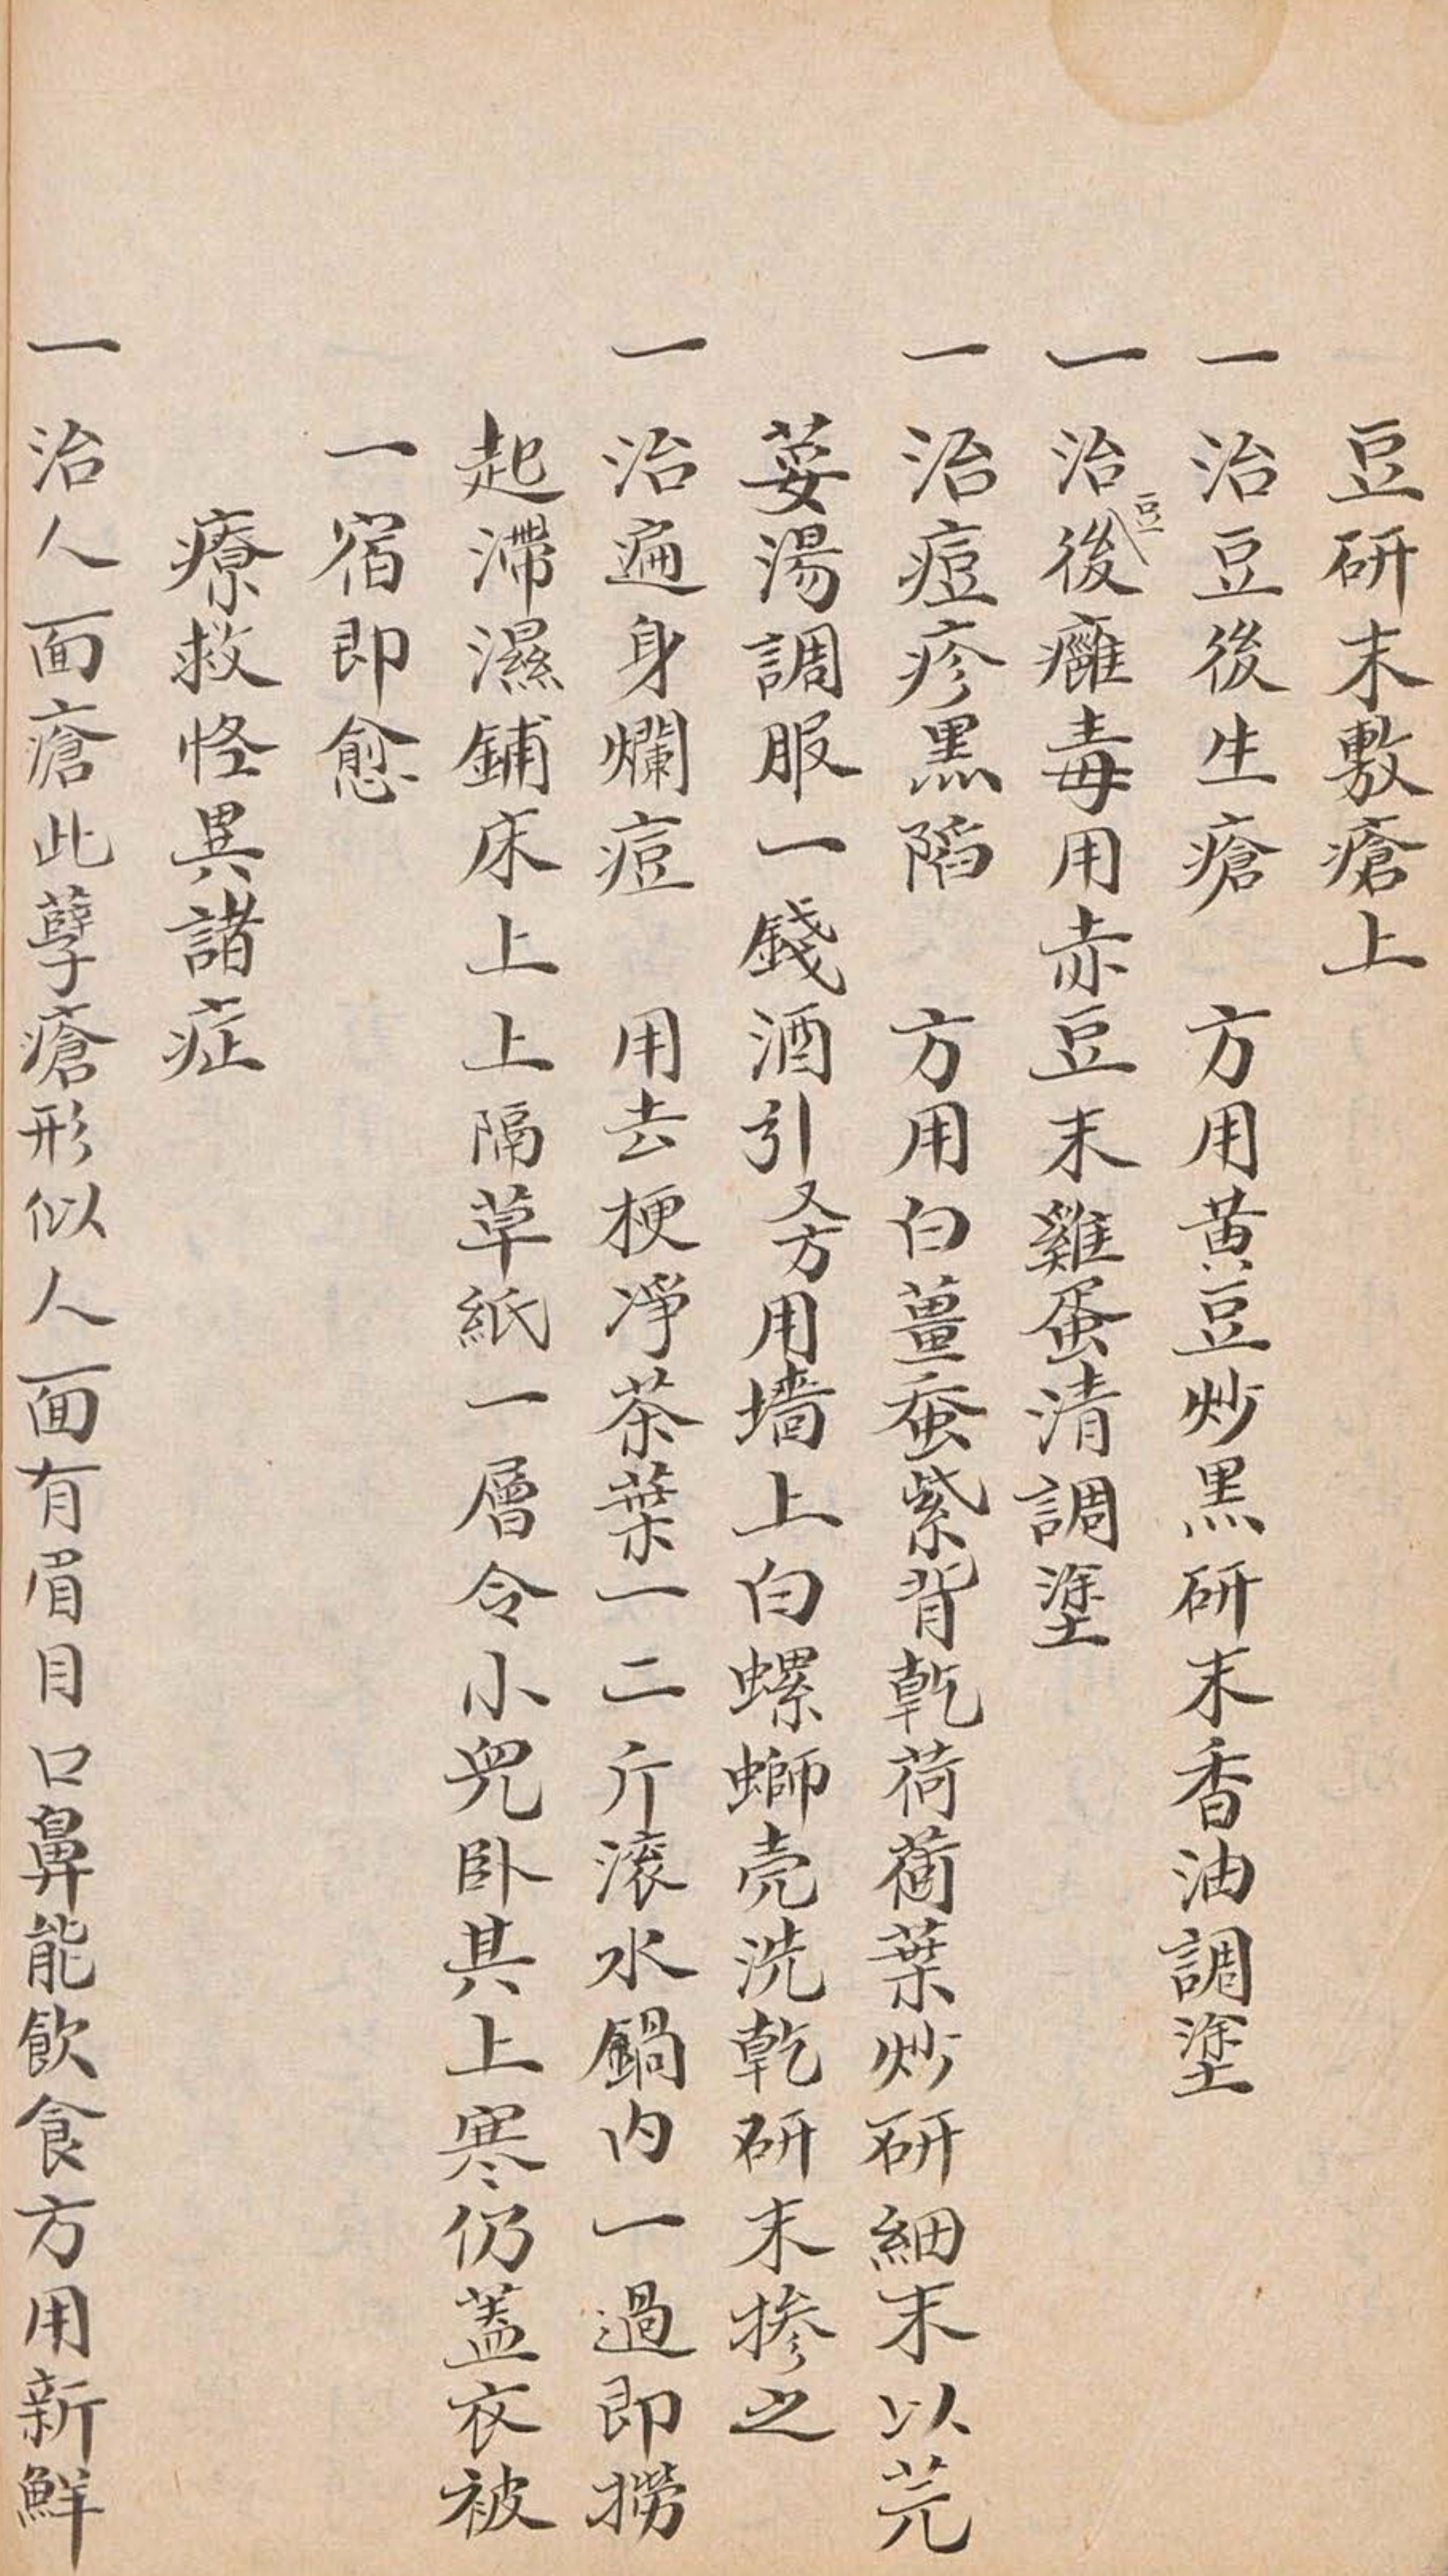 豆研末敷瘡上
一治豆後生瘡　方用黄豆炒黑研末香油調塗
一治豆後癰毒用赤豆末雞蛋清調塗
一治痘疹黑陷　方用白薑蚕紫背乾荷葉炒研細末以芫
荽湯調服一錢酒引又方用墻上白螺螄壳洗乾研末摻之
一治遍身爛痘　用去梗凈茶葉一二斤滚水鍋内一過即撈
起滯濕鋪床上上隔草紙一層令小兒卧其上寒仍蓋衣被
一宿即愈
療救怪異諸症
一治人面瘡此孽瘡形似人面有眉目口鼻能飲食方用新鮮